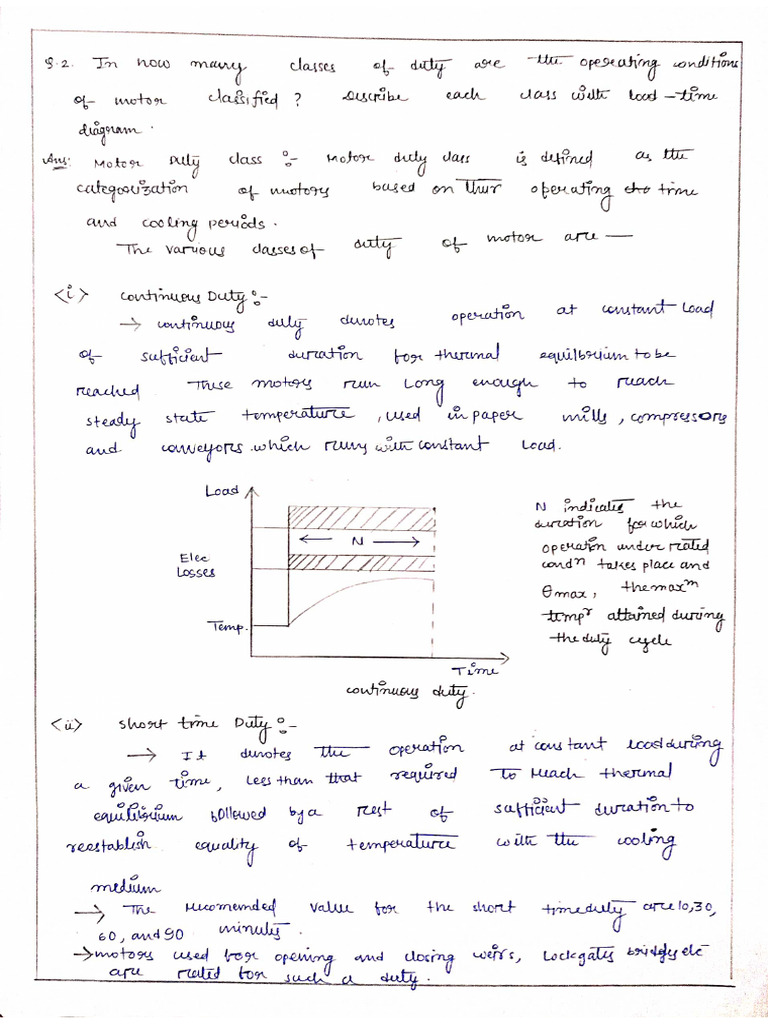 Q.2. In how many classes of duty are the operating conditions
of motor classified? Describe each class with load-time
diagram.
Ans: Motor Duty class :- Motor duty class is defined as the
categorization of motors based on their operating time
and cooling periods.
The various classes of duty of motor are —
<i> continuous Duty :-
→ continuous duty denotes operation at constant Load
of sufficient duration for thermal equilbrium to be
reached. These motors run long enough to reach
steady state temperature, used in paper mills, compressors
and conveyors which runs with constant Load.
Load
N
Elec
Losses
Temp.
Time
continuous duty.
N indicates the
duration for which
operation under rated
condn takes place and
θmax, the maxm
tempr attained during
the duty cycle
<ii> short time Duty :-
→ It denotes the operation at constant load during
a given time, Less than that required to reach thermal
equilibrium followed by a rest of sufficient duration to
reestablish equality of temperature with the cooling
medium
→ The recomended value for the short time duty are 10, 30,
60, and 90 minutes.
→ motors used for opening and closing weirs, Lockgates bridges etc
are rated for such a duty.